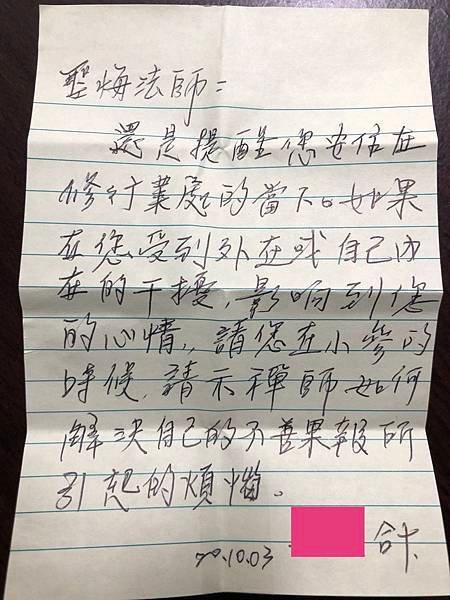 聖悔法師:
還是提醒您安住在
修行業處的當下。如果
在您受到外在或自己內
在的干擾,影响到您
的心情,請您在小參的
時候,請示禪師如何
解決自己的不善果報所
引起的煩惱。
合十
20.10.03